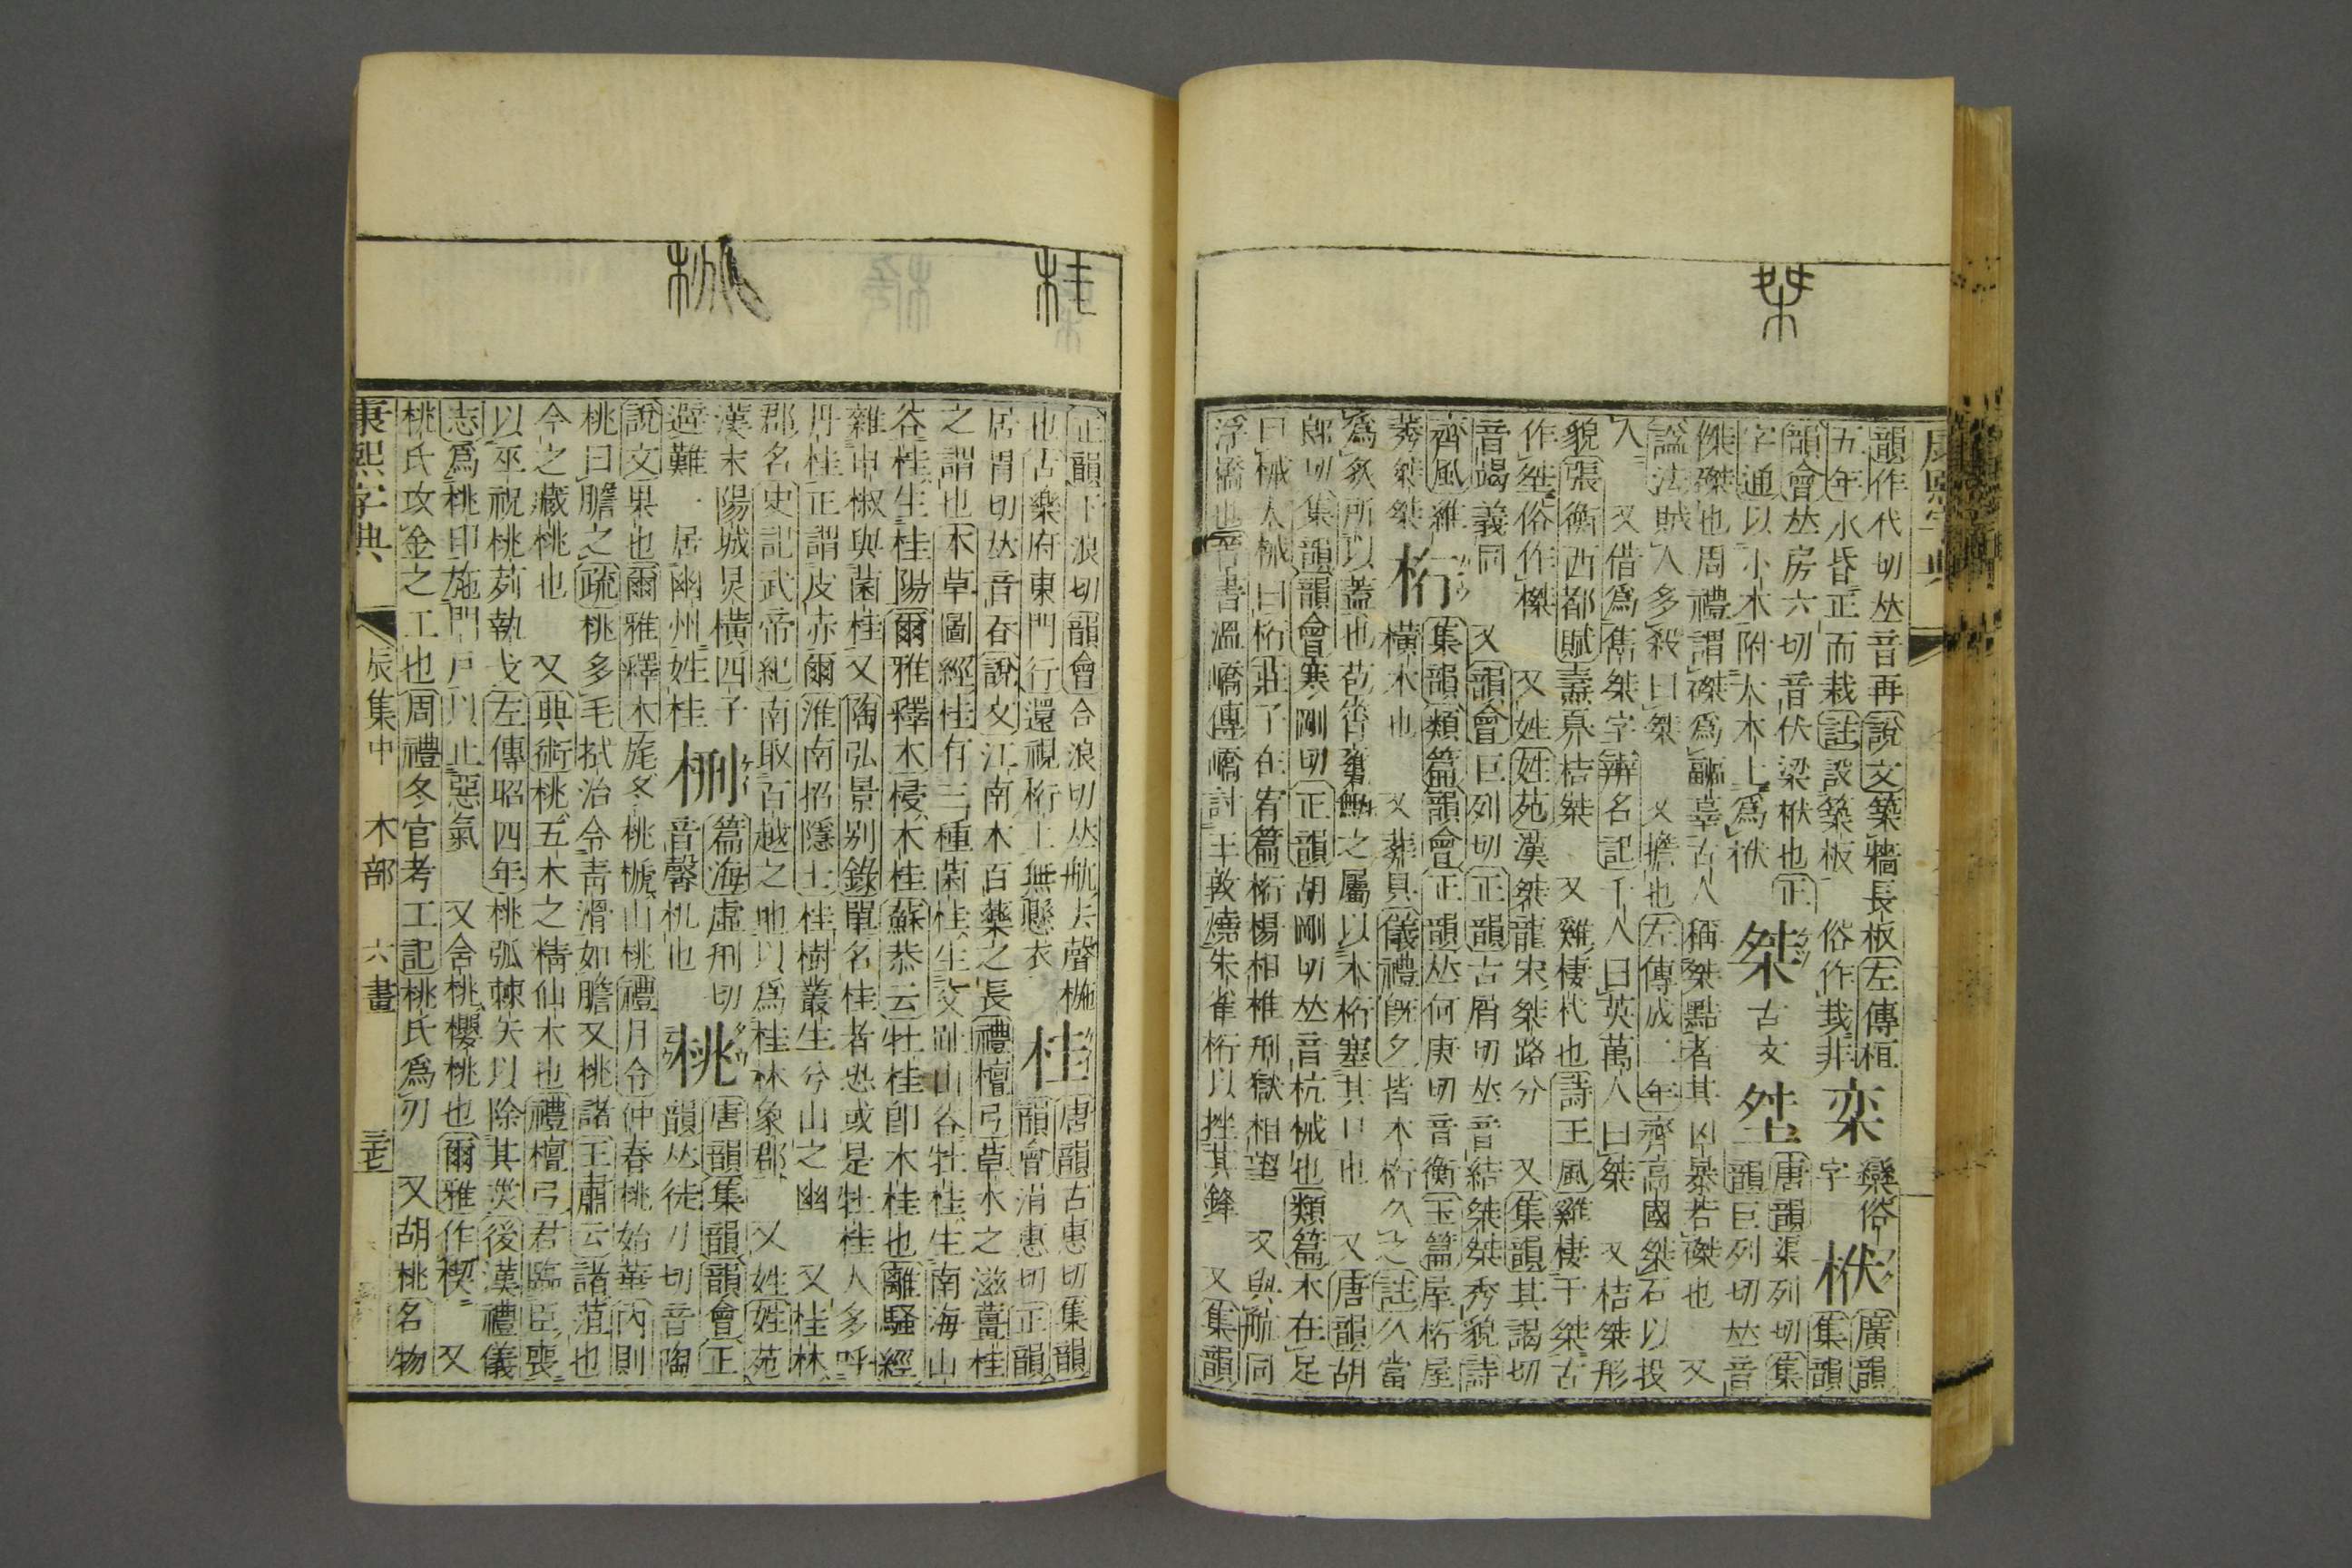 韻作代切𠀤音再說文築牆長板左傳桓
五年水昏正而栽註設築板 俗作㘽非 栾 欒俗字 栿 廣韻集韻
韻會𠀤房六切音伏梁栿也正
字通以小木附大木上爲栿 桀 古文 㙂 唐韻渠列切集韻巨列切𠀤音
傑磔也周禮謂磔爲疈辜古人稱桀黠者其凶暴若磔也 又
諡法賊人多殺曰桀 又擔也左傳成二年齊高國桀石以投
人 又借爲雋桀字辨名記千人曰英萬人曰桀 又桔桀形
貌張衡西都賦 桔桀 又雞棲杙也詩王風雞棲于桀古
作 俗作榤 又姓姓苑漢桀龍宋桀路分 又集韻其謁切
音竭義同 又韻會巨列切正韻古屑切𠀤音結桀桀秀貌詩
齊風維莠桀桀 桁 集韻類篇韻會正韻𠀤何庚切音衡玉篇屋桁屋
橫木也 又葬具儀禮旣夕皆木桁久之註久當
爲灸所以蓋也苞筲甕甒之屬以木桁塞其口也 又唐韻胡
郎切集韻韻會寒剛切正韻胡剛切𠀤音杭械也類篇木在足
曰械大械曰桁莊子在宥篇桁楊相椎刑獄相望 又與航同
浮橋也晉書溫嶠傳嶠討王敦燒朱雀桁以挫其鋒 又集韻
正韻下浪切韻會合浪切𠀤航去聲椸
也古樂府東門行還視桁上無懸衣 桂 唐韻古惠切集韻韻會消惠切正韻
居胃切𠀤音 說文江南木百藥之長禮檀弓草木之滋薑桂
之謂也本草圖經桂有三種菌桂生交趾山谷牡桂生南海山
谷桂生桂陽爾雅釋木梫木桂蘇恭云牡桂卽木桂也離騷經
雜申椒與菌桂 又陶弘景別錄單名桂者恐或是牡桂人多呼
丹桂正謂皮赤爾淮南招隱士桂樹叢生兮山之幽 又桂林
郡名史記武帝紀南取百越之地以爲桂林象郡 又姓姓苑
漢末陽城炅橫四子避難一居幽州姓桂 㭉 篇海虛刑切音馨机也 桃 唐韻集韻韻會正韻𠀤徒刀切音陶
說文果也爾雅釋木旄冬桃榹山桃禮月令仲春桃始華內則
桃曰膽之疏桃多毛拭治令靑滑如膽又桃諸王肅云諸菹也
今之藏桃也 又典術桃五木之精仙木也禮檀弓君臨臣喪
以巫祝桃茢執戈左傳昭四年桃弧棘矢以除其災後漢禮儀
志爲桃印施門戶以止惡氣 又含桃櫻桃也爾雅作楔 又
桃氏攻金之工也周禮冬官考工記桃氏爲刃 又胡桃名物
康熙字典 辰集中 木部 六畫